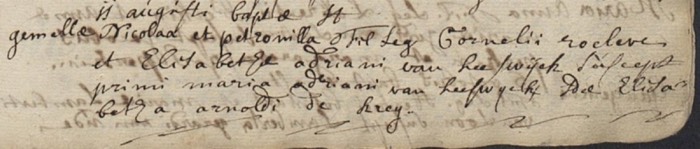 11 augusti baptae st
gemellae Nicolaa et petronilla fil leg Cornelii roelevers
et Elisabethae adriani van heeswijck suscept
primi maria adriani van heeswyck 2dae Elisa-
betha arnoldi de kreÿ.